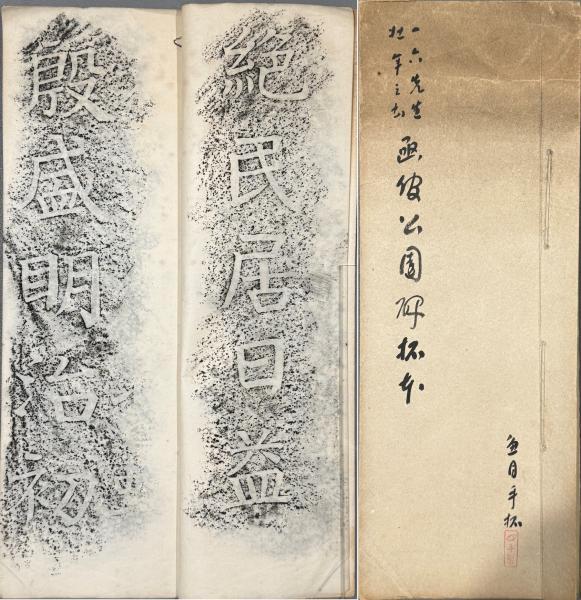 一六先生
壮年之書
凾館公園碑拓本
手拓
絶民居日益
殷盛明治初